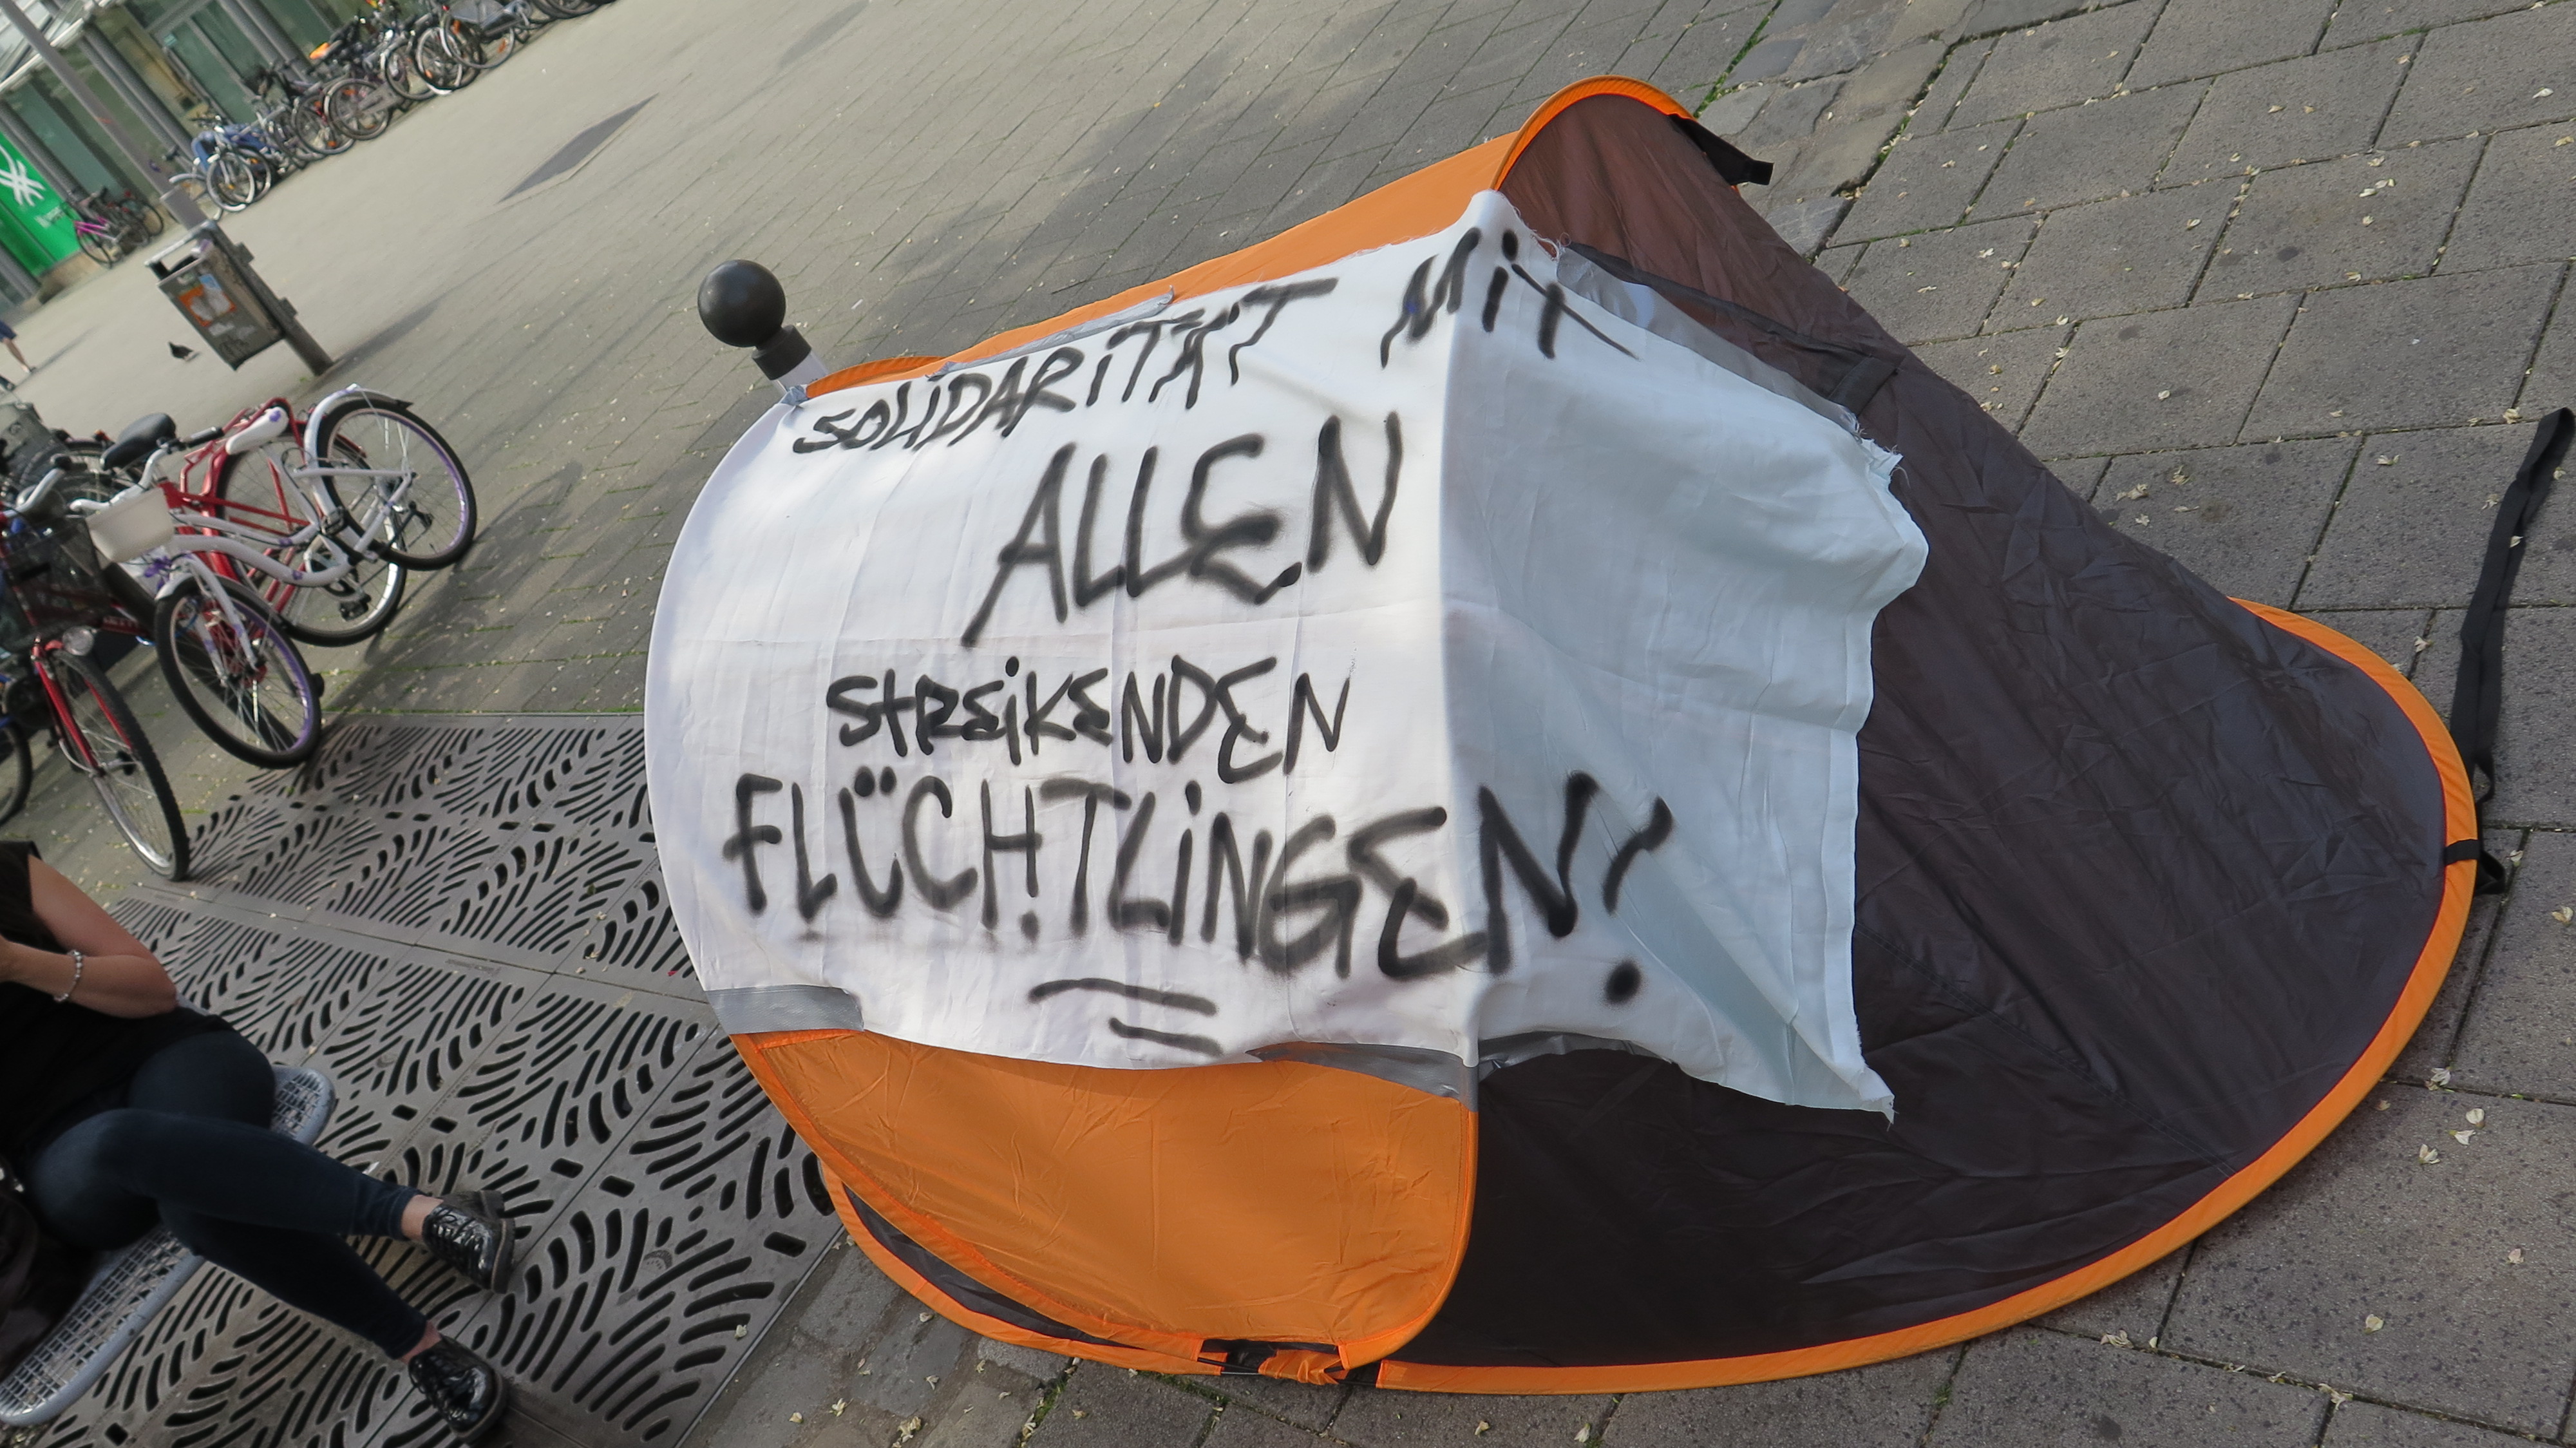 SOLiDARiTÄT MiT
ALLEN
STREiKENDEN
FLÜCHTLiNGEN!